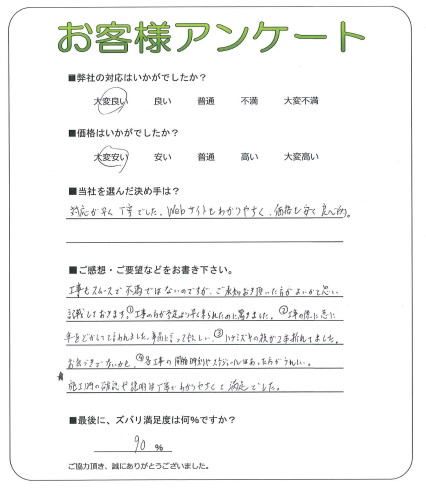 お客様アンケート
■弊社の対応はいかがでしたか?
大変良い 良い 普通 不満 大変不満
■価格はいかがでしたか?
大変安い 安い 普通 高い 大変高い
■当社を選んだ決め手は?
対応が早く丁寧でした。Webサイトもわかりやすく、価格も安く良心的。
■ご感想・ご要望などをお書き下さい。
工事もスムーズで不満ではないのですが、ご承知おき頂いた方がよいかと思い
記載しておきます。①工事の方が予定より早く来られたのに驚きました。②工事の際に急に
車をどかしてと言われました。事前に言って欲しい。③ハナミズキの枝が2本折れてました。
お気づきでないかも。④各工事の開始時刻やスケジュールはあった方がうれしい。
★施工内の確認や説明は丁寧でわかりやすくて満足でした。
■最後に、ズバリ満足度は何%ですか?
90 %
ご協力頂き、誠にありがとうございました。